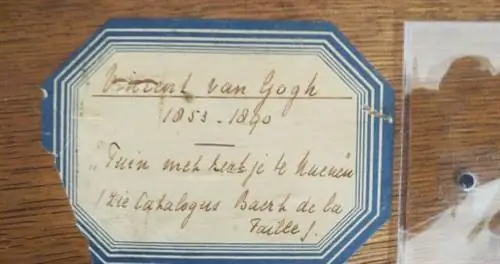 Vincent van Gogh
1853 - 1890
„Tuin met kerkje te Nuenen
/ zie Catalogus Baert de la
Faille /.